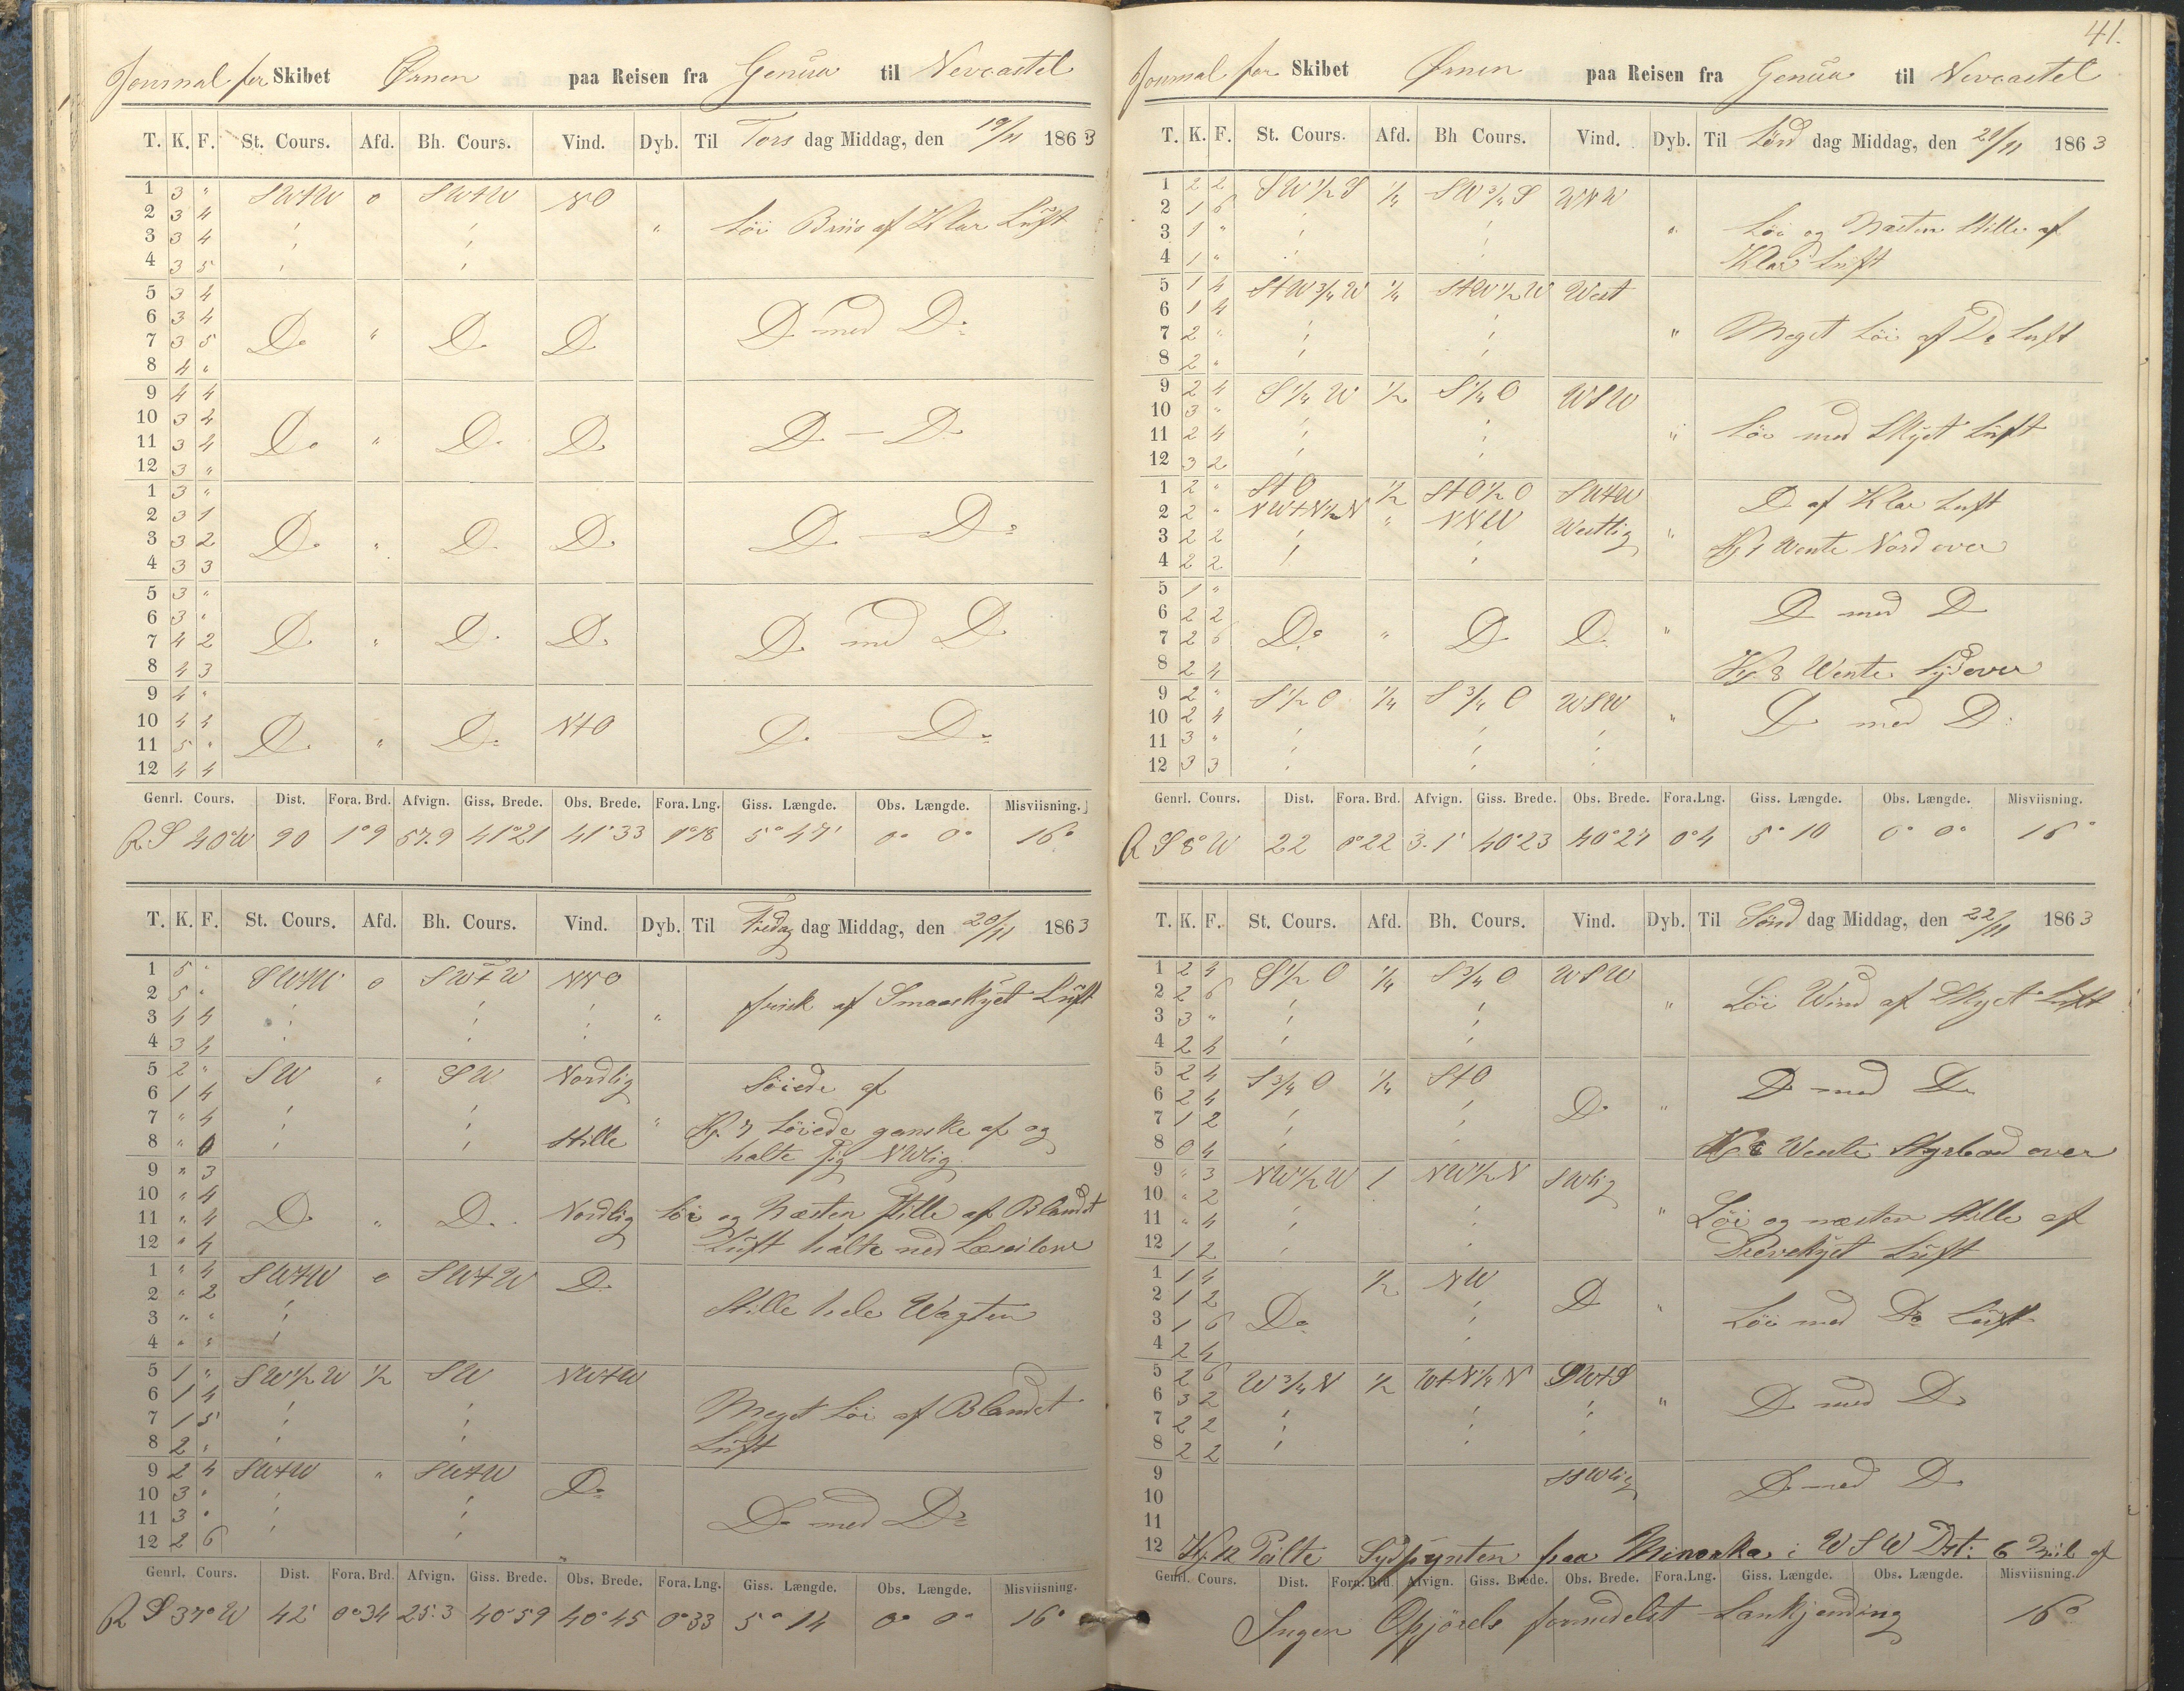 Journal for Skibet Ørnen paa Reisen fra Genua til Nevcastel
T. K. F. St. Cours. Afd. Bh. Cours. Vind. Dyb. Til Tors dag Middag, den 19/11 1863
1 3 " SWtW 0 SWtW NO
2 3 4 " Löi Briis af Klar Luft
3 3 4
4 3 5
5 3 4
6 3 4
7 3 5 Do " Do Do Do med Do
8 4 "
9 4 4
10 3 4
11 3 4 Do " Do Do Do — Do
12 3 "
1 3 "
2 3 1
3 3 2 Do " Do Do Do — Do
4 3 3
5 3 "
6 3 "
7 4 2 Do " Do Do Do med Do
8 4 3
9 4 "
10 4 4 NtO
11 5 " Do " Do Do — Do
12 4 4
Genrl. Cours. Dist. Fora. Brd. Afvign. Giss. Brede. Obs. Brede. Fora. Lng. Giss. Længde. Obs. Længde. Misviisning.
R S 40°W 90 1°9 57.9 41°21 41°33 1°18 5°47' 0° 0° 16°
T. K. F. St. Cours. Afd. Bh. Cours. Vind. Dyb. Til Fredag dag Middag, den 20/11 1863
1 5 " SWtW 0 SWtW NNO
2 5 " frisk af Smaaskyet Luft
3 4 4 "
4 3 4
5 2 " SW " SW Nordlig Löiede af
6 1 4
7 " 4 " Kl 7 Löiede ganske af og
8 " 0 Stille halte sig NWlig
9 " 3
10 " 4
11 " 4 Do " Do Nordlig Löi og Næsten Stille af Blandet
12 " 4 Luft halte ned Læseilene
1 " 4 SWtW 0 SWtW Do
2 " 2 Stille hele Wagten
3 " "
4 " "
5 1 " SW½W ½ SW NWtW
6 1 4 Meget Löi af Blandet
7 1 5 Luft
8 2 "
9 2 4 SWtW " SWtW Do
10 3 "
11 3 " Do med Do
12 2 6
Genrl. Cours. Dist. Fora. Brd. Afvign. Giss. Brede. Obs. Brede. Fora. Lng. Giss. Længde. Obs. Længde. Misviisning.
R S 37°W 42' 0°34 25.3 40°59 40°45 0°33 5°14 0° 0° 16°
41.
Journal for Skibet Ørnen paa Reisen fra Genua til Nevcastel
T. K. F. St. Cours. Afd. Bh Cours. Vind. Dyb. Til Lörd dag Middag, den 21/11 1863
1 2 2 SW½S ¼ SW¾S WNW
2 1 6 Löi og Næsten Stille af
3 1 " " Klar Luft
4 1 "
5 1 4 StW¾W ¼ StW½W West
6 1 4
7 2 " " Meget Löi af Do Luft
8 2 "
9 2 4 S¼W ½ S¼O WSW
10 3 "
11 2 4 " Löi med Skyet Luft
12 3 2
1 2 " StO ½ StO½O SWtW Do af Klar Luft
2 2 " NWtN½N " NNW Westlig
3 2 2 " Kl 1 Wente Nord over
4 2 2
5 1 "
6 2 2 Do med Do
7 2 6 Do " Do Do "
8 2 4 Kl 8 Wente Sydover
9 2 " S½O ¼ S¾O WSW
10 2 4 " Do med Do
11 3 "
12 3 3
Genrl. Cours. Dist. Fora. Brd. Afvign. Giss. Brede. Obs. Brede. Fora.Lng. Giss. Længde. Obs. Længde. Misviisning.
R S 8°W 22 0°22 3.1' 40°23 40°27 0°4 5°10 0° 0° 16°
T. K. F. St. Cours. Afd. Bh. Cours. Vind. Dyb. Til Sönd dag Middag, den 22/11 1863
1 2 4 S½O ¼ S¾O WSW
2 2 6 " Löi Wind af Skyet Luft
3 3 "
4 2 4
5 2 4 S¾O ¼ StO
6 2 4 Do " Do med Do
7 1 2
8 0 4 Kl 8 Wente Styrbord over
9 " 3 NW½W 1 NW½N SWlig
10 " 2
11 " 4 " Löi og næsten Stille af
12 1 2 Drevskyet Luft
1 1 4 ½ NW
2 1 2 Do
3 1 6 Do " Löi med Do Luft
4 2 4
5 2 6 W¾N ½ WtN¼N SWtS
6 3 2 " Do med Do
7 2 2
8 2 2
9 SSWlig
10 Do med Do
11
12 Kl. 12 Peilte Sydpynten paa Minorka i WSW Dst: 6 Mil af
Genrl. Cours. Dist. Fora. Brd. Afvign. Giss. Brede. Obs. Brede. Fora.Lng. Giss. Længde. Obs. Længde. Misviisning.
Ingen Opjörels formedelst Lankjending 16°